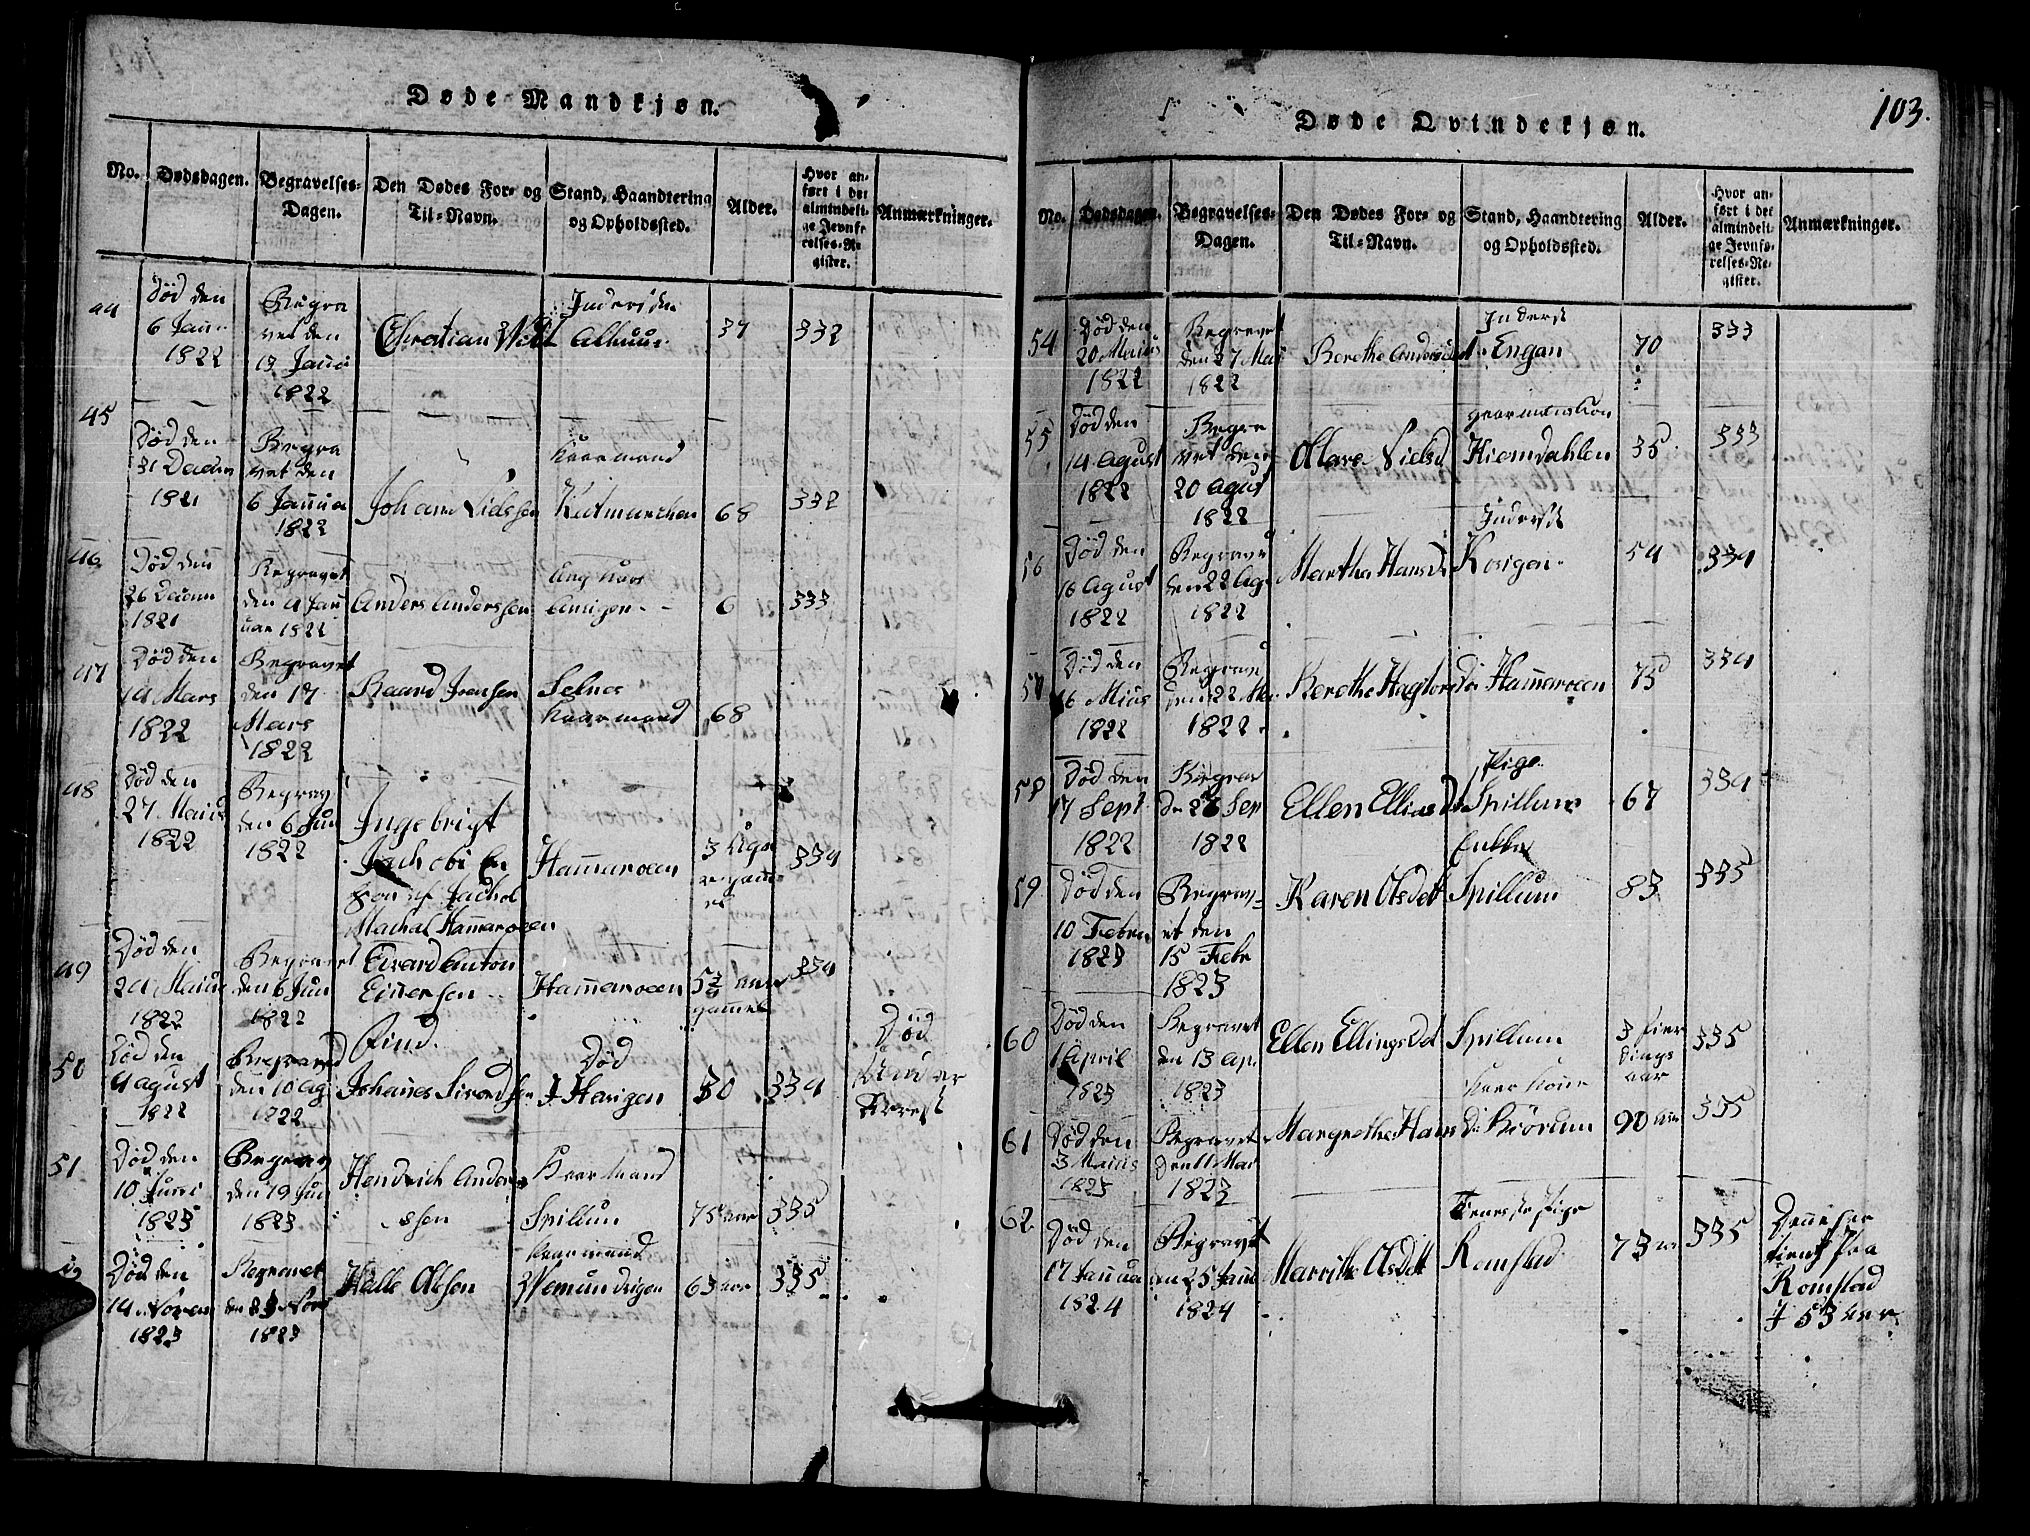 Døde Mandkjøn.
No.
Dødsdagen.
Begravelses-
Dagen.
Den Dødes For- og
Til-Navn.
Stand, Haandtering
og Opholdssted.
Alder.
Hvor an-
ført i det
almindeli-
ge Jevnfø-
relses-Re-
gister.
Anmærkninger.
44
Død den
6 Janu
1822
Begra
vet den
13 Janu
1822
Christian
37
332
45
Død den
31 Decbr
1821
Begra
vet den
6 Janua
1822
Johan Nielssen
Huusmand
68
332
46
Død den
26
1821
Begravet
den 4 Jan
uar 1822
Anders Anderssen
6
333
47
Død den
14 Mars
1822
Begravet
den 17
Mars
1822
Baard Jonsen
Selnes
68
48
Død den
27 Maius
1822
Begrav
den 6 Jun
1822
Ingebrigt
Jachobi En
Søn af Jachob
Machal Hammaroeen
Hammaroeen
3 Uger
334
49
Død den
24 Maius
1822
Begravet
den 6 Jun
1822
Eivard Anton
Einersen
Hammaroeen
5½
gammel
334
50
Død den
4 Agust
1822
Begraved
den 10 Ag
1822
Find.
Johanes Sivordsen
Død
J Havigen
30
334
Død
Under
Arrest
51
Død den
10 Juni
1823
Begrav
den 19 Jun
1823
Hendrich Anders
ssen
Spillun
75 aar
335
52
Død den
14 Novem
1823
Begravet
den 23 Nov
1823
Helle Olssen
Vemundvigen
63 aar
335
103.
Døde Qvindekjøn.
No.
Dødsdagen.
Begravelses-
Dagen.
Den Dødes For- og
Til-Navn.
Stand, Haandtering
og Opholdssted.
Alder.
Hvor an-
ført i det
almindeli-
ge Jevnfø-
relses-Re-
gister.
Anmærkninger.
54
Død den
20 Maius
1822
Begravet
den 27 Mai
1822
Berethe Andersdat
Inderst
Engan
70
333
55
Død den
14 Agust
1822
Begra
vet den
20 Agus
1822
Olava Nielsd
Hiemdahlen
35
333
56
Død den
16 Agust
1822
Begravet
den 22 Ag
1822
Martha Hansd
Inderst
54
334
Død den
16 Mius
1822
Begravet
den 22 Mai
1822
Berethe Hagtorsd
Hammaroeen
75
334
58
Død den
17 Sept
1822
Begrav
de 26 Sep
1822
Ellen Ellins
Pige
Spillum
67
334
59
Død den
10 Febru
1823
Begrav-
et den
15 Febr
1823
Karen Olsdet
Enkke
Spillum
83
335
60
Død den
1 April
1823
Begravet
den 13 Ap.
1823
Ellen Ellingsdet
Spillum
3 fier
dings
aar
335
61
Død den
3 Maius
1823
Begravet
den 11 Mai
1823
Margrethe Hans
Kaar Kone
Biørum
90 aar
335
62.
Død den
17 Janua
1824
Begravet
den 25 Janu
1824
Marrithe Olsdett
Romstad
73
335
Denne har
tient paa
Romstad
J 53 aar